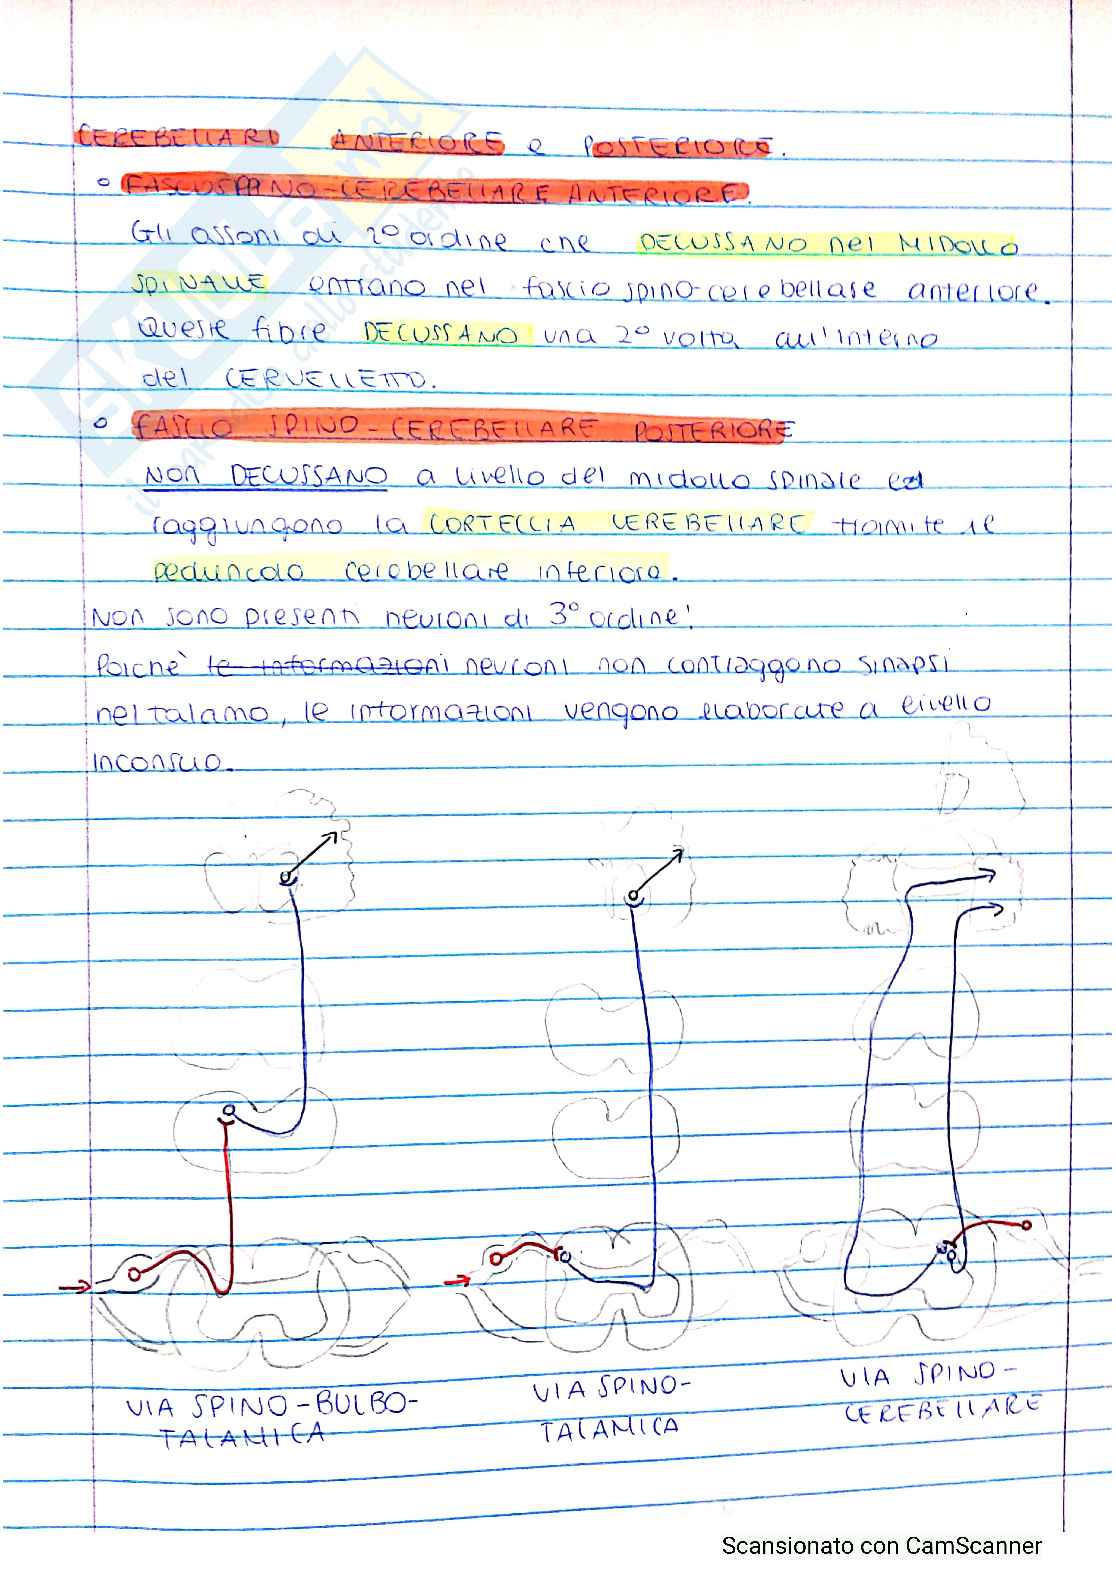 CEREBELLARI ANTERIORE e POSTERIORE.
FASCIO SPINO-CEREBELLARE ANTERIORE.
Gli assoni di 2° ordine che DECUSSANO nel MIDOLLO
SPINALE entrano nel fascio spino-cerebellare anteriore.
Queste fibre DECUSSANO una 2° volta all'interno
del CERVELLETTO.
FASCIO SPINO-CEREBELLARE POSTERIORE
NON DECUSSANO a livello del midollo spinale ed
raggiungono la CORTECCIA CEREBELLARE tramite il
peduncolo cerebellare inferiore.
Non sono presenti neuroni di 3° ordine!
Poichè le informazioni neuroni non contraggono sinapsi
nel talamo, le informazioni vengono elaborate a livello
inconscio.
VIA SPINO-BULBO-
TALAMICA
VIA SPINO-
TALAMICA
VIA SPINO-
CEREBELLARE
Scansionato con CamScanner